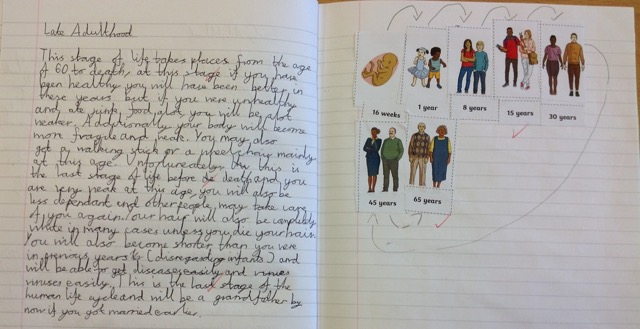 Late Adulthood
This stage of life takes places from the age
of 60 to death, at this stage if you have
been healthy you will have been better in
these years, but if you were unhealthy
and ate junk food alot, you will be alot
weaker. Additionally your body will become
more fragile and weak. You may also
got a walking stick or a wheelchair mainly
at this age. Unfortunately this is
the last stage of life before death and you
are very weak at this age, you will also be
less dependant and other people may take care
of you again. Your hair will also be completely
white in many cases unless you die your hair.
You will also become shorter than you were
in previous years (disregarding infants) and
will be able to get diseases easily and viruses
viruses easily. This is the last stage of the
human life cycle and will be a grandfather by
now if you got married earlier.
16 weeks
1 year
8 years
15 years
30 years
45 years
65 years